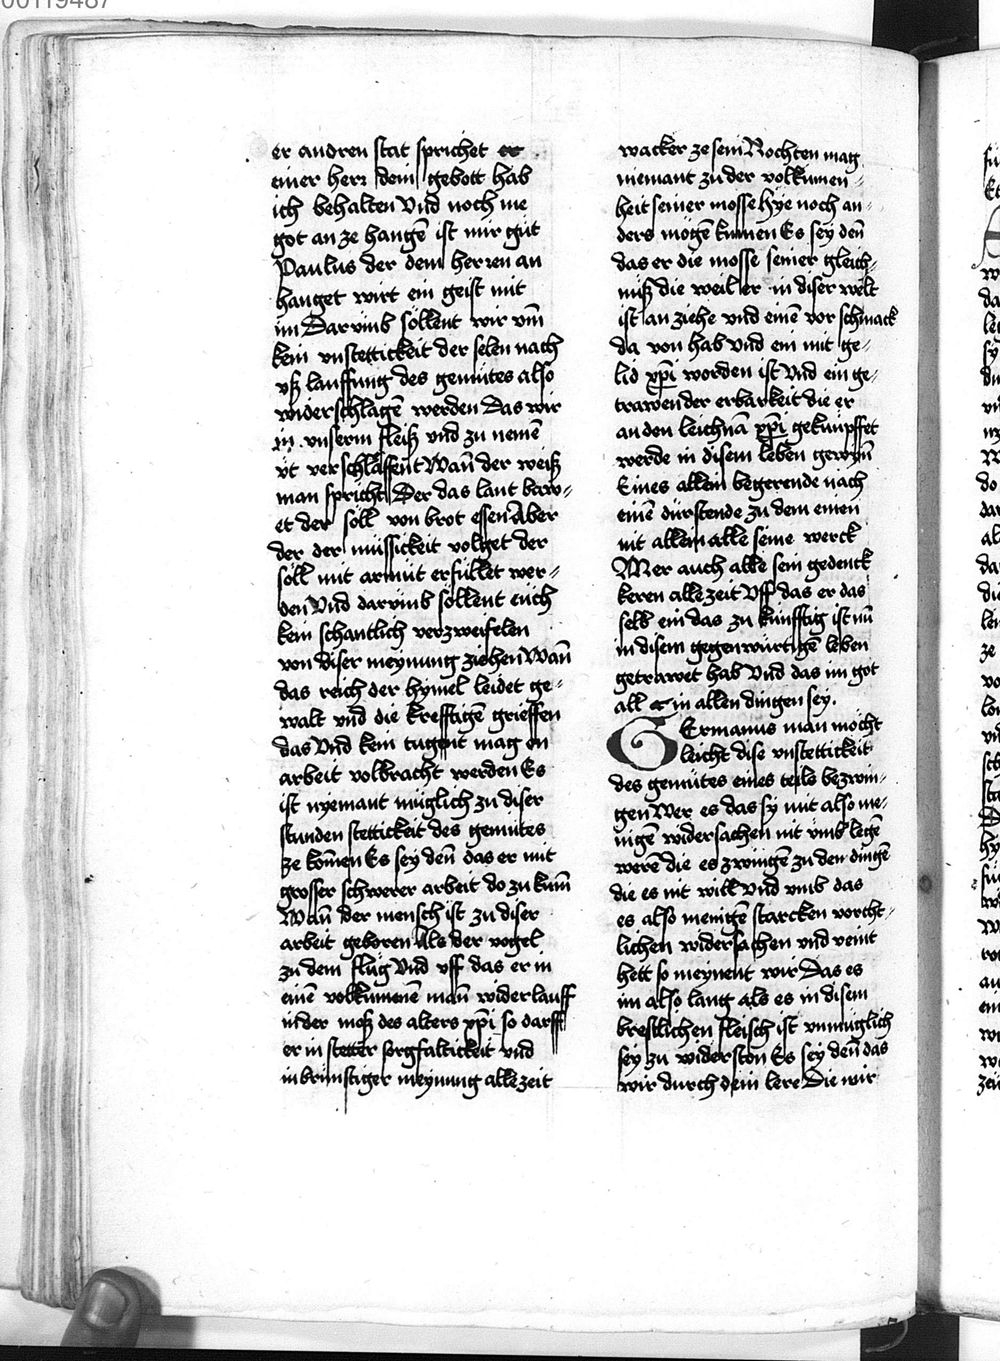 00119487
er andren stat sprichet er
einer herr dein gebott hab
ich behalten Vnd noch me
got an ze hangē ist mir gůt
Paulus der dem herren an
hanget wirt ein geist mit
im Darvmb söllent wir vm̄
kein vnstettickeit der selen nach
vß lauffung des gemütes also
widerschlagē werden Das wir
in vnserm fleiß vnd zu nemē
üt verschlaffent Wan̄ der weiß
man spricht Der das lant baw⸗
et der söll von brot essen Aber
der der müssickeit volget der
söll mit armůt erfüllet wer⸗
den Vnd darvmb söllent euch
kein schantlich verzweifelen
von diser meynung ziehen Wan̄
das reich der hymel leidet ge⸗
walt vnd die krefftigē grieffen
das Vnd kein tugent mag on
arbeit volbracht werden Es
ist nyemant müglich zu diser
stunden stettickeit des gemütes
ze kom̄en Es sey den̄ das er mit
grosser schwerer arbeit do zu kum̄
Wan̄ der mensch ist zu diser
arbeit geboren Als der vogel
zu dem flug Vnd vff das er in
einē volkumenē man̄ widerlauff
in der moß des alters xp̄i so darff
er in stetter sorgfaltickeit vnd
inbrünstiger meynung alle zeit
wacker ze sein Nochten mag
niemant zu der volkumen⸗
heit seiner mosse hye noch an⸗
ders mögē kumen Es sey den̄
das er die mosse seiner gleich⸗
niß die weil er in diser welt
ist an ziehe vnd einē vor schmack
da von hab vnd ein mit ge⸗
lid xp̄i worden ist Vnd ein ge⸗
trawen der erbarkeit die er
an den leichnā xp̄i geknüpffet
werde in disem leben gewyn̄
Eines allein begerende nach
einē dürstende zu dem einen
nit allein alle seine werck
Mer auch alle sein gedenck
keren alle zeit Vff das er das
selb ein das zu künfftig ist nū
in disem gegenwürtigē leben
getrawet hab Vnd das im got
all in allen dingen sey.
GErmanus man mocht
leicht dise vnstettickeit
des gemütes eines teils bezwin⸗
gen Wer es das sy mit also me⸗
nigē widersachen nit vmb legē
werē die es zwingē zu den dingē
die es nit will Vnd vmb das
es also menigē starcken vorcht⸗
lichen widersachen vnd veint
hett so meynent wir Das es
im also lang als es in disem
brestlichen fleisch ist vnmüglich
sey zu widerston Es sey den̄ das
wir durch dein lere Die wir